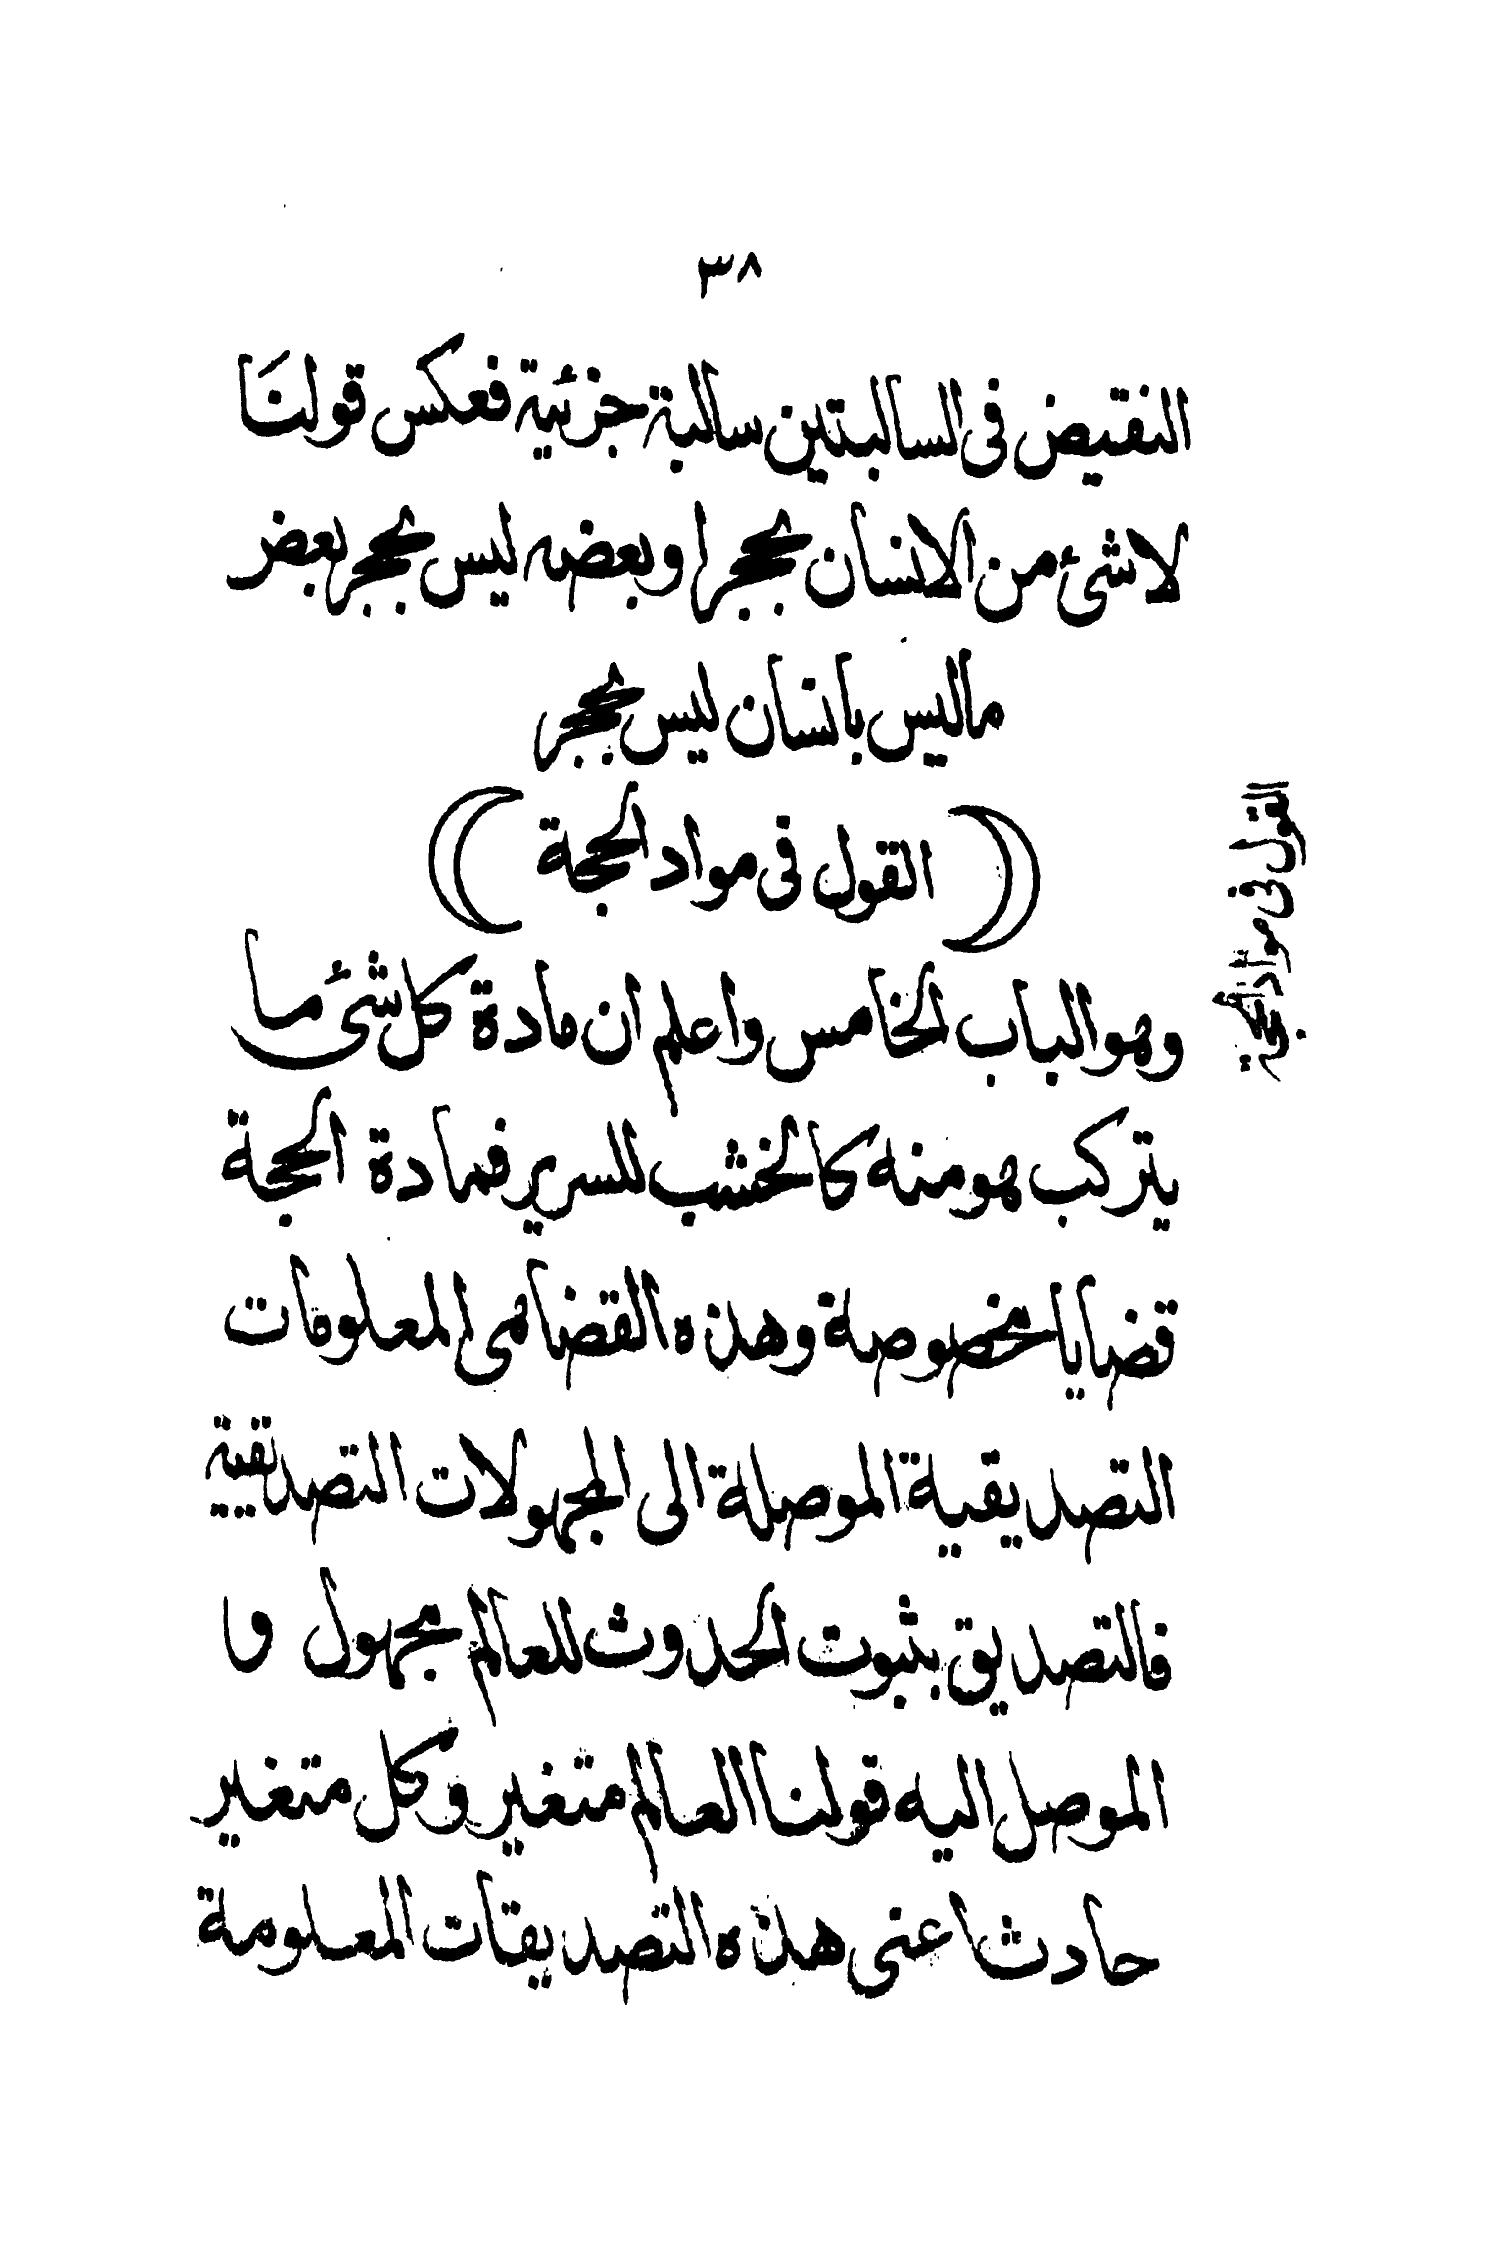 ٣٨
النقيض فى السالبتين سالبة جزئية فعكس قولنَا
لاشئ من الانسان بحجر او بعضه ليس بحجر بعض
ماليس بانسان ليس بحجر
( القول فى مواد الحجة )
القول فى مواد الحجة
وهو الباب الخامس واعلم ان مادة كل شئ ما
يتركب هو منه كالخشب للسرير فمادة الحجة
قضايا مخصوصة وهذه القضاهى المعلومات
التصديقية الموصلة الى المجهولات التصديقية
فالتصديق بثبوت الحدوث للعالم مجهول وا
الموصل اليه قولنا العالم متغير وكل متغير
حادث اعنى هذه التصديقات المعلومة